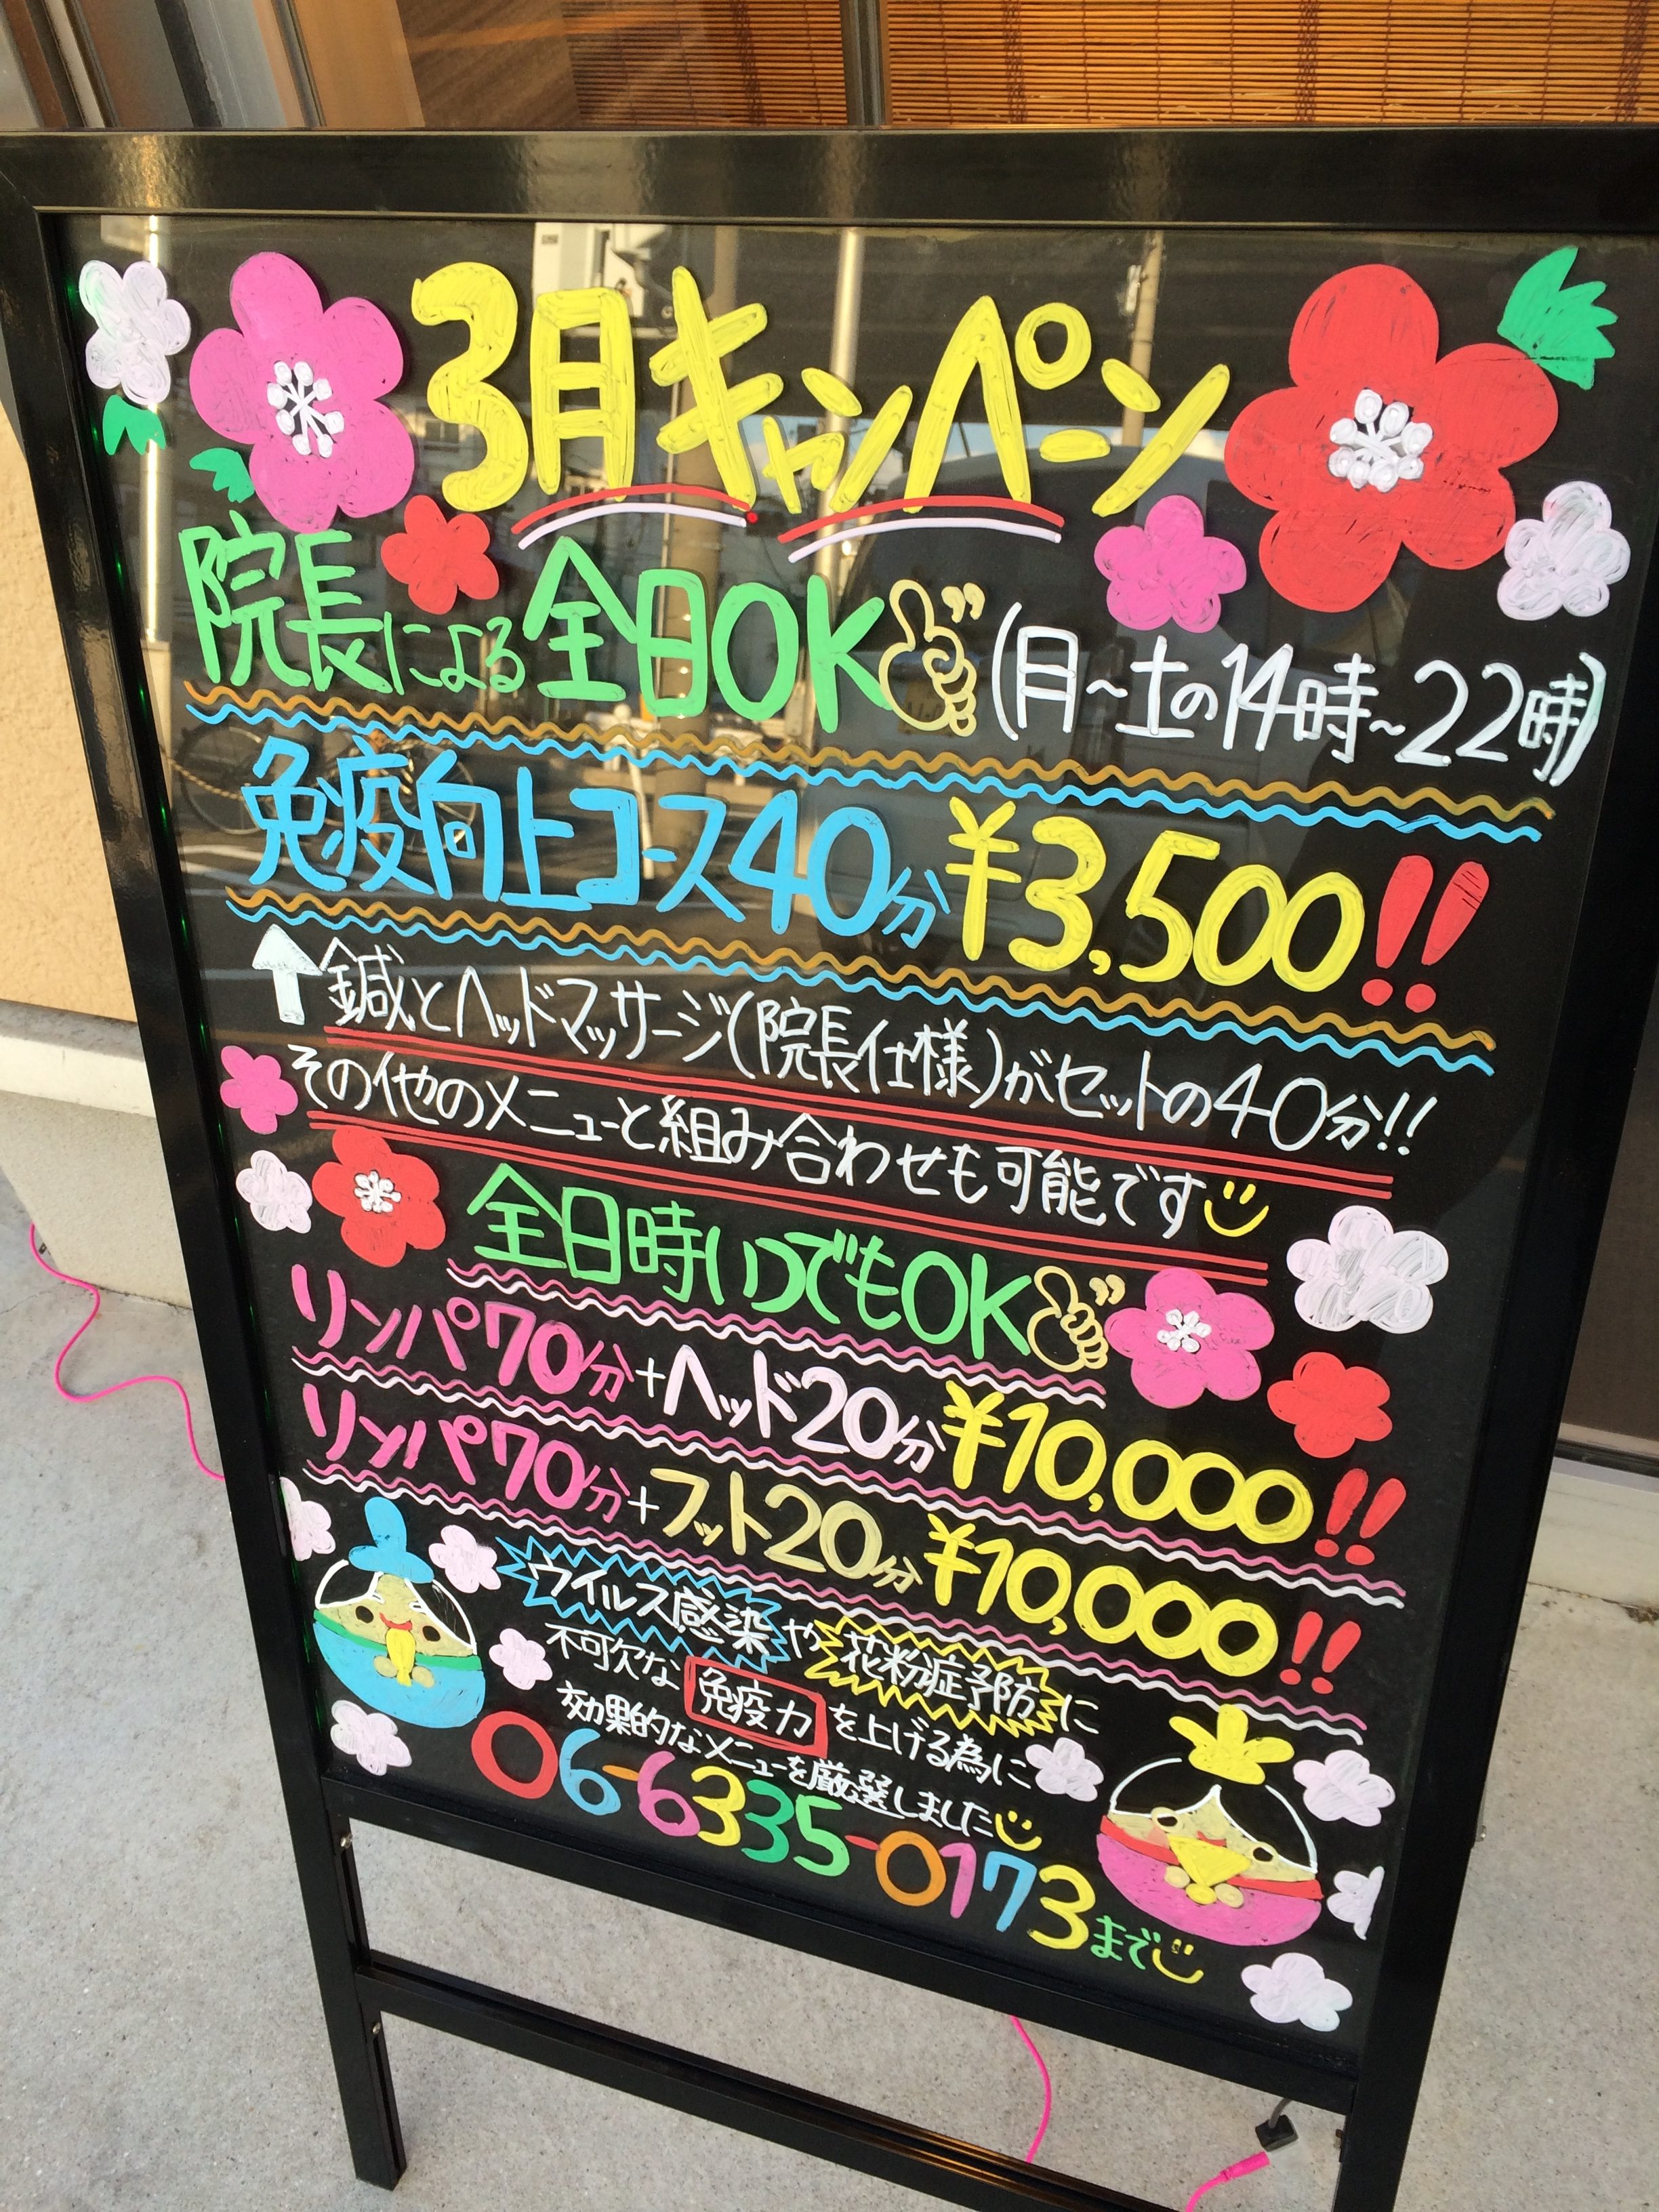 3月キャンペーン
院長による全日OK(月～土の14時～22時)
免疫向上コース40分¥3,500!!
↑鍼とヘッドマッサージ(院長仕様)がセットの40分!!
その他のメニューと組み合わせも可能です
全日時いつでもOK
リンパ70分+ヘッド20分¥10,000!!
リンパ70分+フット20分¥10,000!!
ウイルス感染や花粉症予防に
不可欠な免疫力を上げる為に
効果的なメニューを厳選しました
06-6335-0173まで